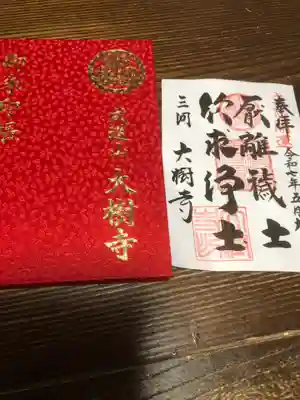 奉拝
令和七年五月
厭離穢土
欣求浄土
三河 大樹寺
成道山 大樹寺
御朱印帳